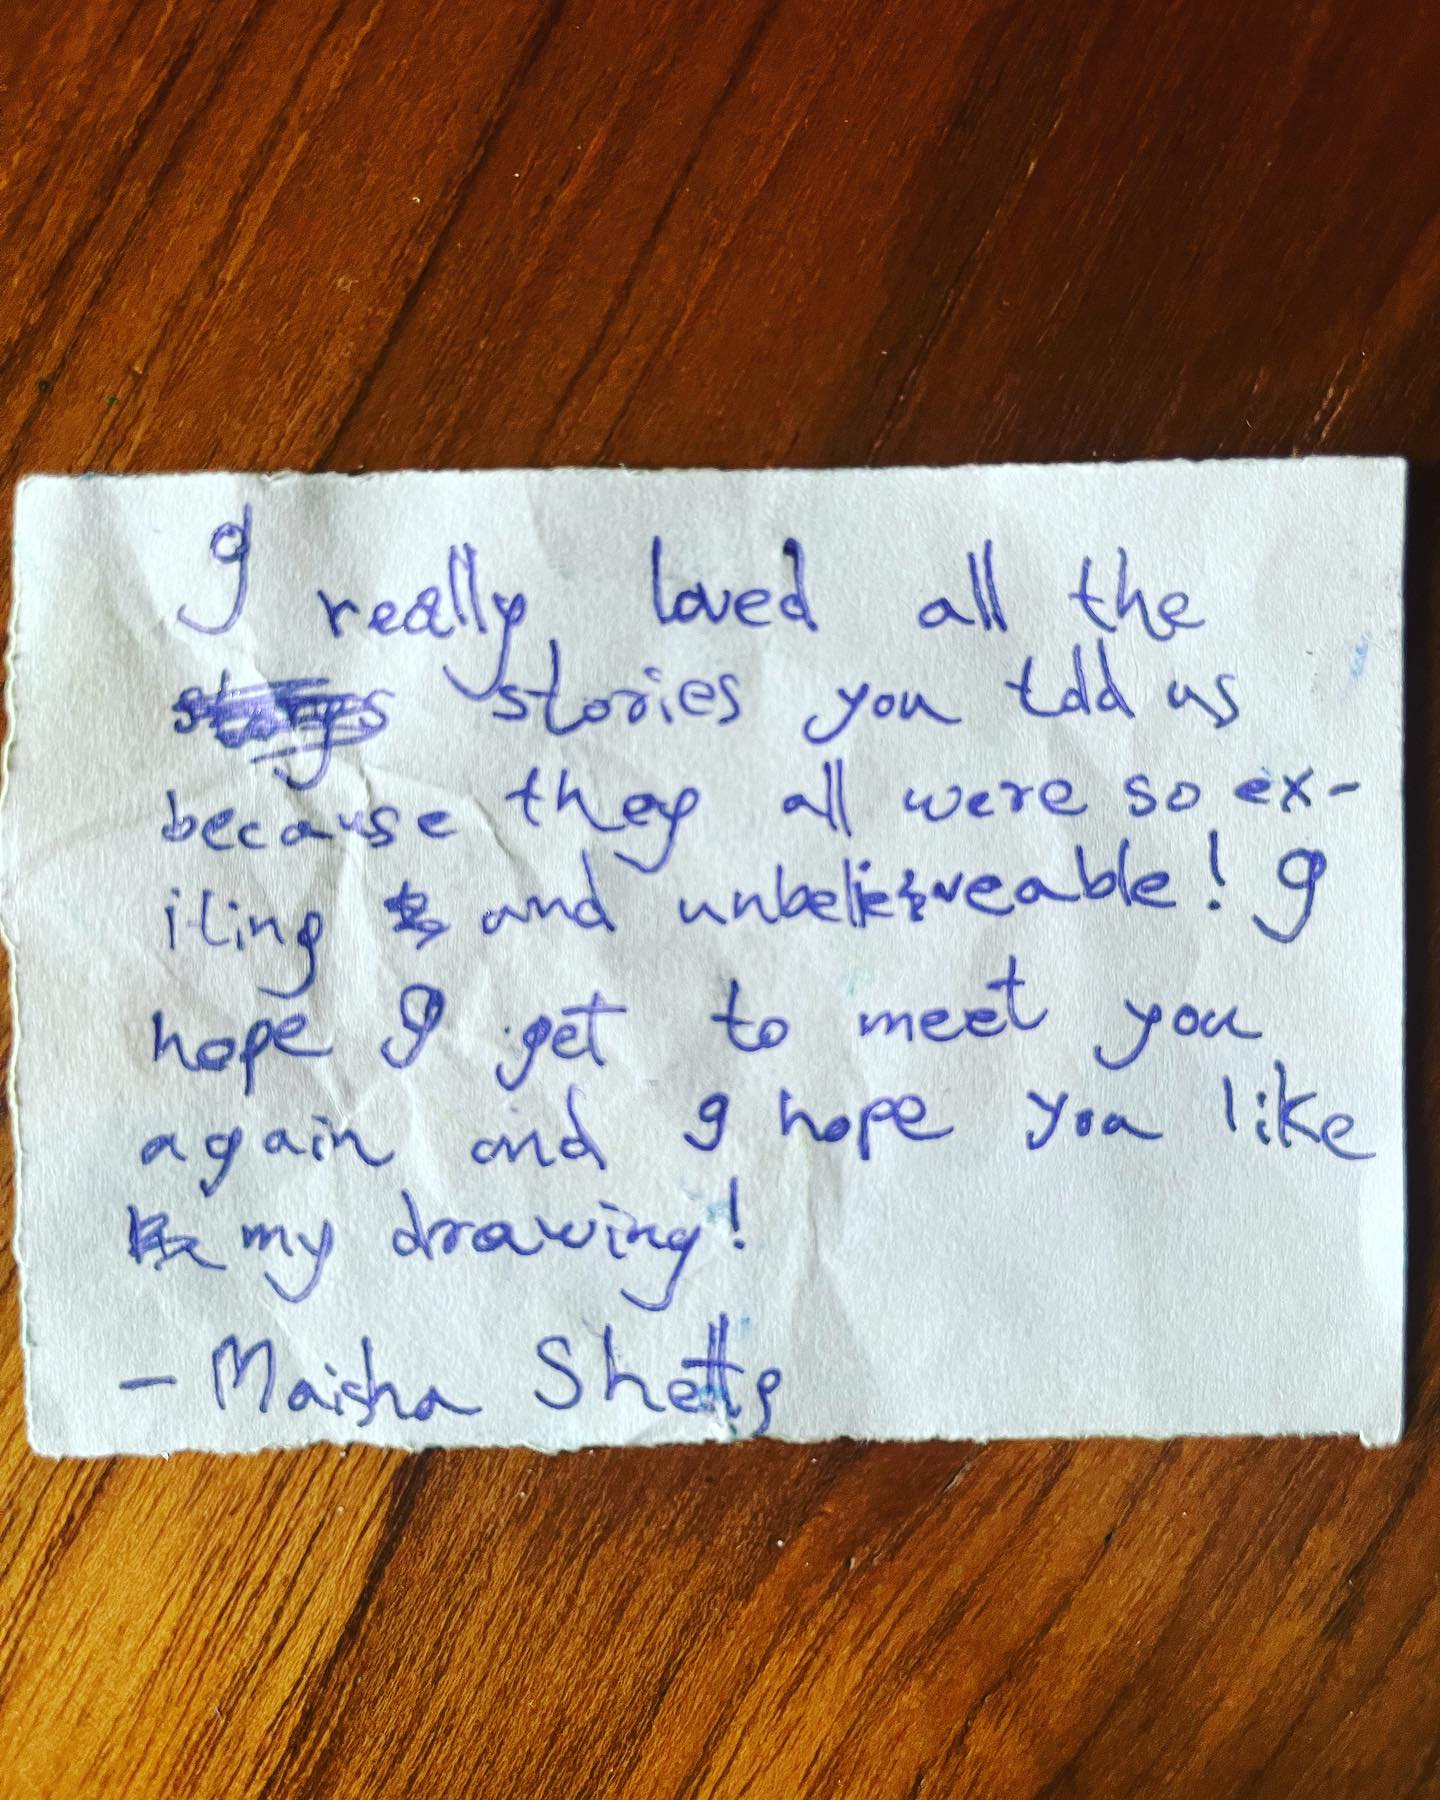 I really loved all the
stories you told us
because they all were so ex-
iting and unbelieveable! I
hope I get to meet you
again and I hope you like
my drawing!
- Maisha Shetty